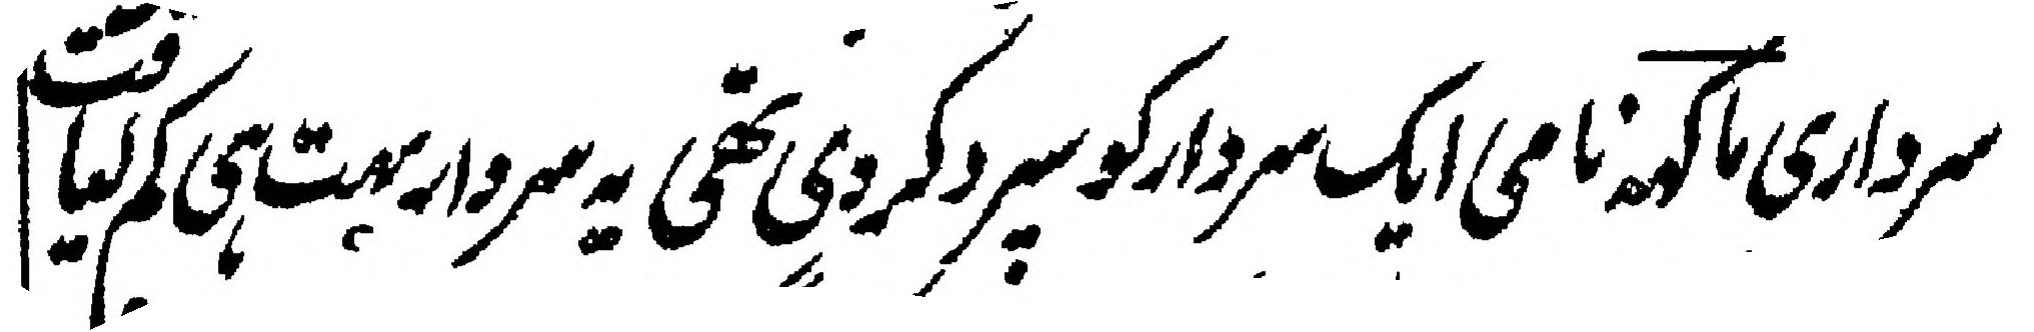 سرداری ماگھہ نامی ایک سردار کو سپرد کر دی تھی یہ سردار بہت ہی کم لیاقت